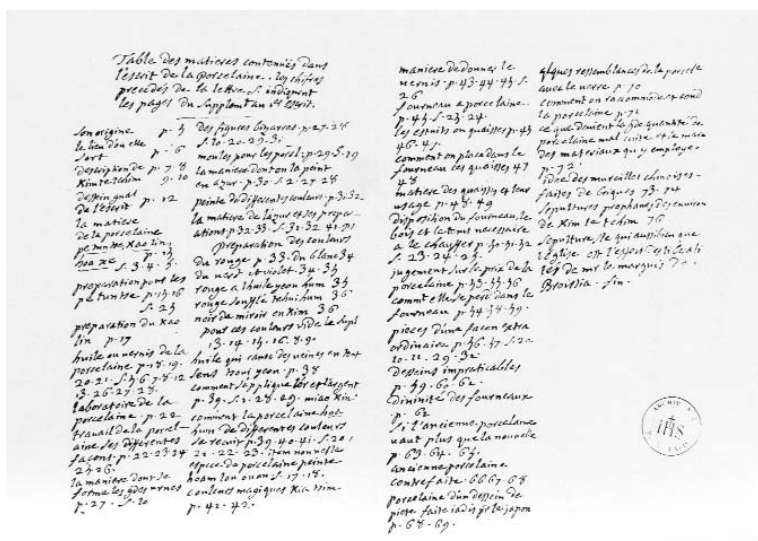 Table des matieres contenües dans
l'escrit de la porcelaine. les chifres
precedés de la lettre S. indiquent
les pages du Supplement au dt Escrit.
son origine p. 5
le lieu d'ou elle
sort p. 6
description de p. 7. 8
Kimtetchim 9. 10
dessein gnal
de l'escrit p. 12
la matiere
de la porcelaine
pe tuntse, Kao lin,
hoa xe p. 13
S. 3. 4. 5.
preparation pour les
pe tuntse p. 15. 16
S. 25
preparation du Kao
lin p. 17
huile ou vernis de la
porcelaine. p. 18. 19.
20. 21. S. 5. 6. 7. 8. 12
13. 26. 27. 28.
laboratoire de la
porcelaine. p. 22
travail de la porcel-
aine ses differentes
façons. p. 22. 23. 24
25. 26.
la maniere dont se
forme les gdes urnes
p. 27. S. 20
des figures bizarres. p. 27. 28
S. 10. 20. 29. 31.
moules pour les porcel. p. 29. S. 19
la maniere dont on la peint
en azur. p. 30. S. 2. 27. 28
peinte de differentes couleurs. p. 31. 32
la matiere de l'azur et ses prepar-
ations p. 32. 33. S. 31. 32. 41. ps
preparation des couleurs
du rouge p. 33. du blanc 34
du verd et violet. 34. 35
rouge a l'huile yeou hum 35
rouge soufflé tchui hum 36
noir de miroir ou Kim 36
pour ces couleurs vide le supl
13. 14. 15. 16. 8. 9.
huile qui cause des veines en tout
sens tsoui yeou. p. 38
comment s'applique l'or et l'argent
p. 39. S. 1. 28. 29. miao Kin.
comment la porcelaine hot-
hum de differentes couleurs
se recuit p. 39. 40. 41. S. 20.
21. 22. 23. item nouvelle
espece de porcelaine peinte
hoam lou ouan S. 17. 18.
couleurs magiques Kia tsim.
p. 42. 42.
maniere de donner le
vernis. p. 43. 44. 45. S.
26
fourneau a porcelaine.
p. 45. S. 23. 24.
les estuits ou quaisses p. 45
46. 47.
comment on place dans le
fourneau ces quaisses 47
48
matiere des quaisses et leur
usage p. 48. 49
disposition du fourneau, le
bois et le tems necessaire
a le chauffer p. 50. 51. 52
S. 23. 24. 25.
jugement sur le prix de la
porcelaine p. 53. 55. 56
commt elle se perd dans le
fourneau p. 54. 58. 59.
pieces d'une façon extra
ordinaire p. 56. 57. S. 20
20. 22. 29. 32
desseins impraticables
p. 59. 60. 62.
divinité des fourneaux
p. 62
si l'ancienne porcelane
vaut plus que la nouvelle
p. 63. 64. 65.
ancienne porcelaine
contrefaite 66 67. 68
porcelaine d'un dessein de
pieté faite iadis pr le japon
p. 68. 69.
qlques ressemblances de la porcele
avec le verre p. 70
comment on racommode et coud
la porcelaine p. 72
ce que devient la gde quantité de
porcelaine mal cuite et le marc
des materiaux qu'y employe.
p. 72.
idée des murailles chinoises
faites de briques 73. 74
Sepultures prophanes des environ
de Kim te tchim 76
Sepulture, le qui aussi bien que
l'eglise est l'effect de la
de mr le marquis de
Broissia. fin.
ARCHIV
IHS